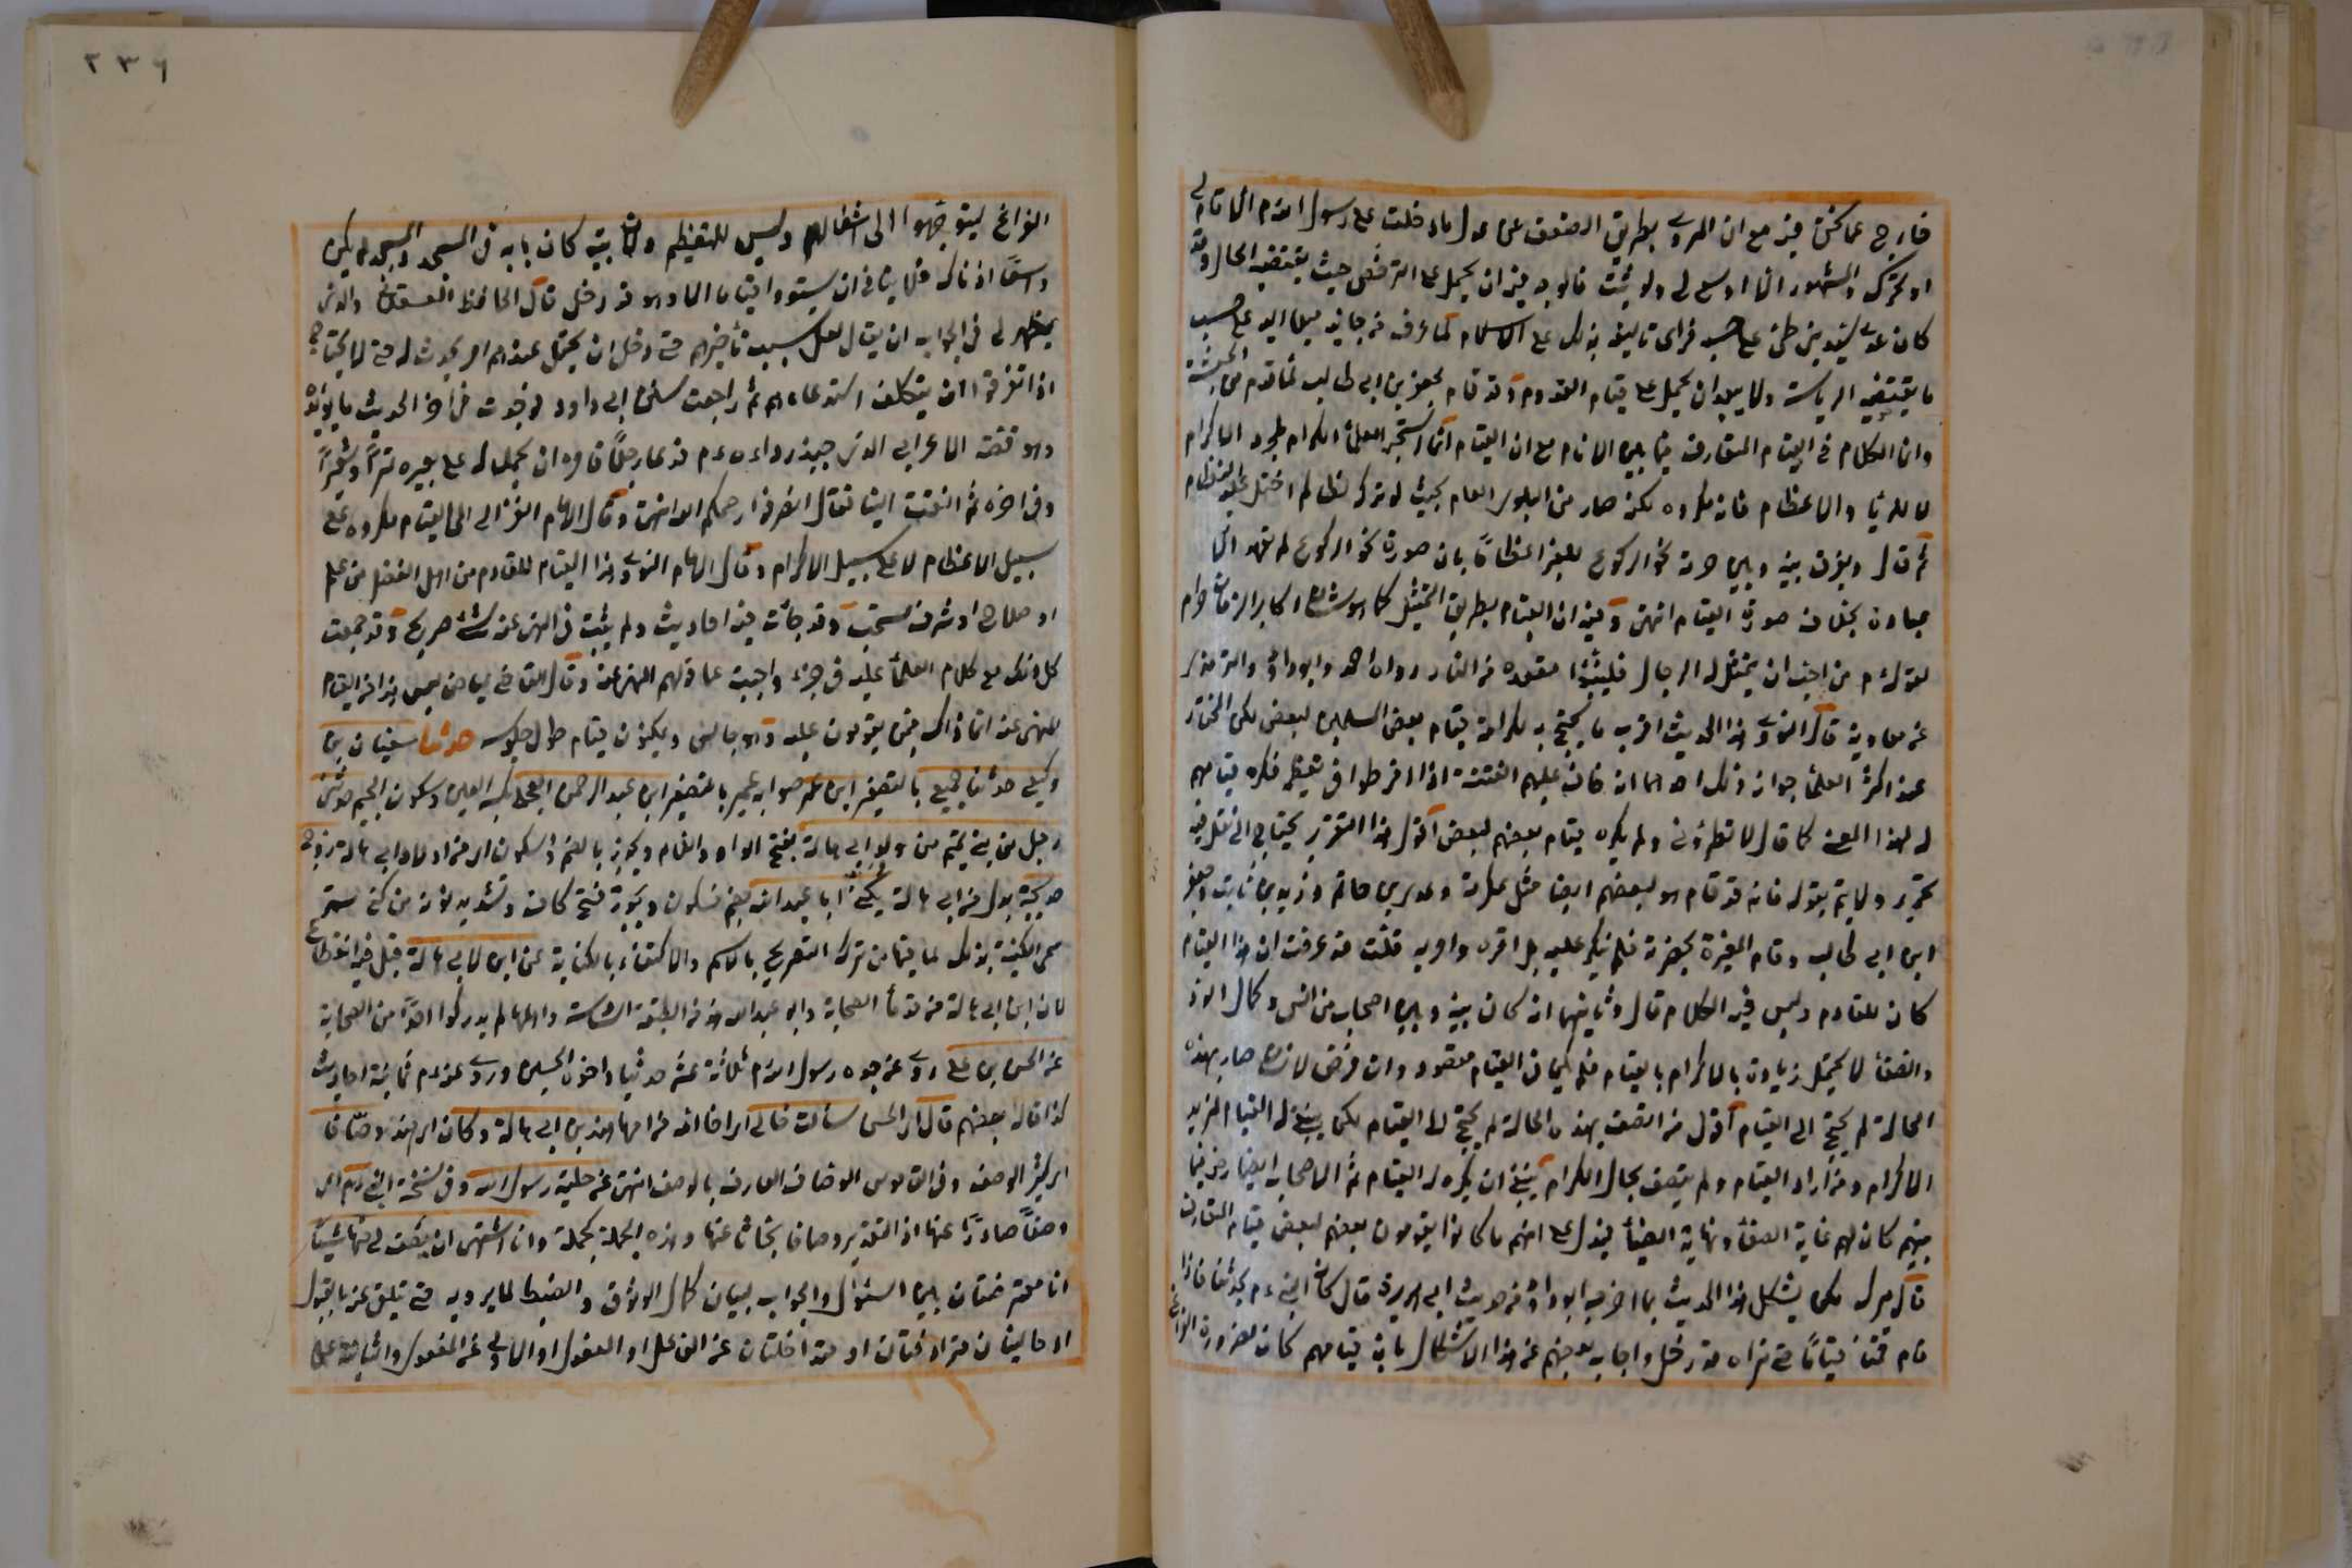 خارج عما نحن فيه مع ان المروي بطريق الضعف عن عدي ما دخلت على رسول الله م الا قام لي
او تحرك والمشهور الا اوسع لي ولو ثبت فالوجه فيه ان يحمل على الترخص حيث يقتضيه الحال وقد
كان عدي سيد بني طي على حسب فراى تاليفه بذلك على الاسلام لما عرف من جانبه ميلا اليه على حسب
ما يقتضيه الرياسة ولا يبعد ان يحمل على قيام القدوم وقد قام لجعفر بن ابي طالب لما قدم من الحبشة
وان الكلام في القيام المتعارف فيما بين الانام مع ان القيام انما استحبه العلماء الكرام لمجرد الاكرام
لا للريا والاعظام فانه مكروه لكنه صار من البلوى العام بحيث لو ترك لعالم اختل عليه النظام
ثم قال ويفرق بينه وبين حرمة نحو الركوع للغير اعظاما بان صورة نحو الركوع لم تعهد الا
عبادة بخلاف صورة القيام انتهى وفيه ان القيام بطريق التمثل كما هو شان اكابر الزمان حرام
لقوله م من احب ان يتمثل له الرجال فليتبوا مقعده من النار رواه احمد وابو داود والترمذي
عن معاوية قال النووي هذا الحديث اقرب ما يحتج به لكراهة قيام بعض المسلمين لبعض لكن المختار
عند اكثر العلماء جوازه وذلك احدهما انه خاف عليهم الفتنة اذا افرطوا في تعظيمه فكره قيامهم
له لهذا المعنى كما قال لا تطروني ولم يكره قيام بعضهم لبعض اقول هذا التقرير يحتاج الى نقل فيه
تحرير ولا يتم بقوله فانه قد قام هو لبعضهم ايضا مثل عكرمة وعدي بن حاتم وزيد بن ثابت وجعفر
ابن ابي طالب وقام المغيرة بحضرته فلم ينكر عليه بل اقره وامر به قلت قد عرفت ان هذا القيام
كان للقادم وليس فيه الكلام قال وثانيهما انه كان بينه وبين اصحابه من الانس وكمال الود
والصفاء لا يحتمل زيادة بالاكرام بالقيام فلم يكن في القيام مقصود وان فرض لانسان صار بهذه
الحالة لم يحتج الى القيام اقول من اتصف بهذه الحالة لم يحتج الى القيام لكن ينبغي له القيام لمزيد
الاكرام ومن اراد القيام ولم يتصف بحال الكرام ينبغي ان يكره له القيام ثم الاصحاب ايضا رض فيما
بينهم كان لهم غاية الصفاء ونهاية الضياء فيدل على انهم ما كانوا يقومون بعضهم لبعض قيام المتعارف
قال ميرك لكن يشكل هذا الحديث بما اخرجه ابو داود من حديث ابي هريرة قال كان النبي ءم يحدثنا فاذا
قام قمنا قياما حتى نراه قد دخل واجاب بعضهم عن هذا الاشكال بان قيامهم كان لضرورة الفراغ
٢٣٦
الفراغ ليتوجهوا الى اشغالهم وليس للتعظيم ولان بيته كان بابه في المسجد والمسجد لم يكن
واسعا اذ ذاك فلا ينافي ان يستووا قياما الا وهو قد دخل قال الحافظ العسقلاني والذي
يظهر لي في الجواب ان يقال لعل سبب تأخيرهم حتى دخل ان يحتمل عندهم امر يحدث له حتى لا يحتاج
اذا تفرقوا ان يتكلف استدعاءهم ثم راجعت سنن ابي داود فوجدت في اخر الحديث ما يؤيده
وهو قصة الاعرابي الذي جبذ رداءه ءم فدعا رجلا فامره ان يحمل له على بعيره تمرا وشعيرا
وفي اخره ثم التفت الينا فقال انصرفوا رحمكم الله انتهى وقال الامام الغزالي القيام مكروه على
سبيل الاعظام لا على سبيل الاكرام وقال الامام النووي هذا القيام للقادم من اهل الفضل من علم
او صلاح او شرف مستحب وقد جاءت فيه احاديث ولم يثبت في النهي عنه شئ صريح وقد جمعت
كل ذلك مع كلام العلماء عليه في جزء واجبت عما توهم النهي عنه وقال القاضي عياض ليس هذا من القيام
المنهي عنه انما ذاك فيمن يقومون عليه وهو جالس ويمكثون قيام طول جلوسه حدثنا سفيان بن
وكيع حدثنا جميع بالتصغير ابن عمر صوابه عمير بالتصغير ابن عبد الرحمن العجلي بكسر العين وسكون الجيم حدثني
رجل من بني تميم من ولد ابي هالة بفتح الواو واللام ويجوز بالضم والسكون اي من اولاد ابي هالة زوج
خديجة بدل من ابي هالة يكنى ابا عبد الله بضم فسكون ويجوز فتح كاف وتشديد نون من كنى ستر
سمى الكنية بذلك لما فيها من ترك التصريح بالاسم والاكتفاء بالكناية عن ابن لابي هالة قيل فيه انقطاع
لان ابن ابي هالة من قدماء الصحابة وابو عبد الله هذا من الطبقة السادسة واهلها لم يدركوا احدا من الصحابة
عن الحسن بن علي روى عن جده رسول الله م ثلاثة عشر حديثا واخوه الحسين وروى عنه ءم ثمانية احاديث
كذا قاله بعضهم قال اي الحسن سألت خالي اي اخا امه من امها هند بن ابي هالة وكان اي هند وصافا
اي كثير الوصف وفي القاموس الوصاف العارف بالوصف انتهى عن حلية رسول الله وفي نسخة النبي ءم اي
وصفا صادرا عنها اذ التقدير وصافا بحاثا عنها وهذه الجملة كجملة وانا اشتهي ان يصف لي منها شيئا
اما معترضتان بين السؤال والجواب لبيان كمال الوثوق والضبط لما يرويه حتى يتلقى عنه بالقبول
او حاليتان مترادفتان او متداخلتان عن الفاعل او المفعول او الاولى عن المفعول والثانية عن